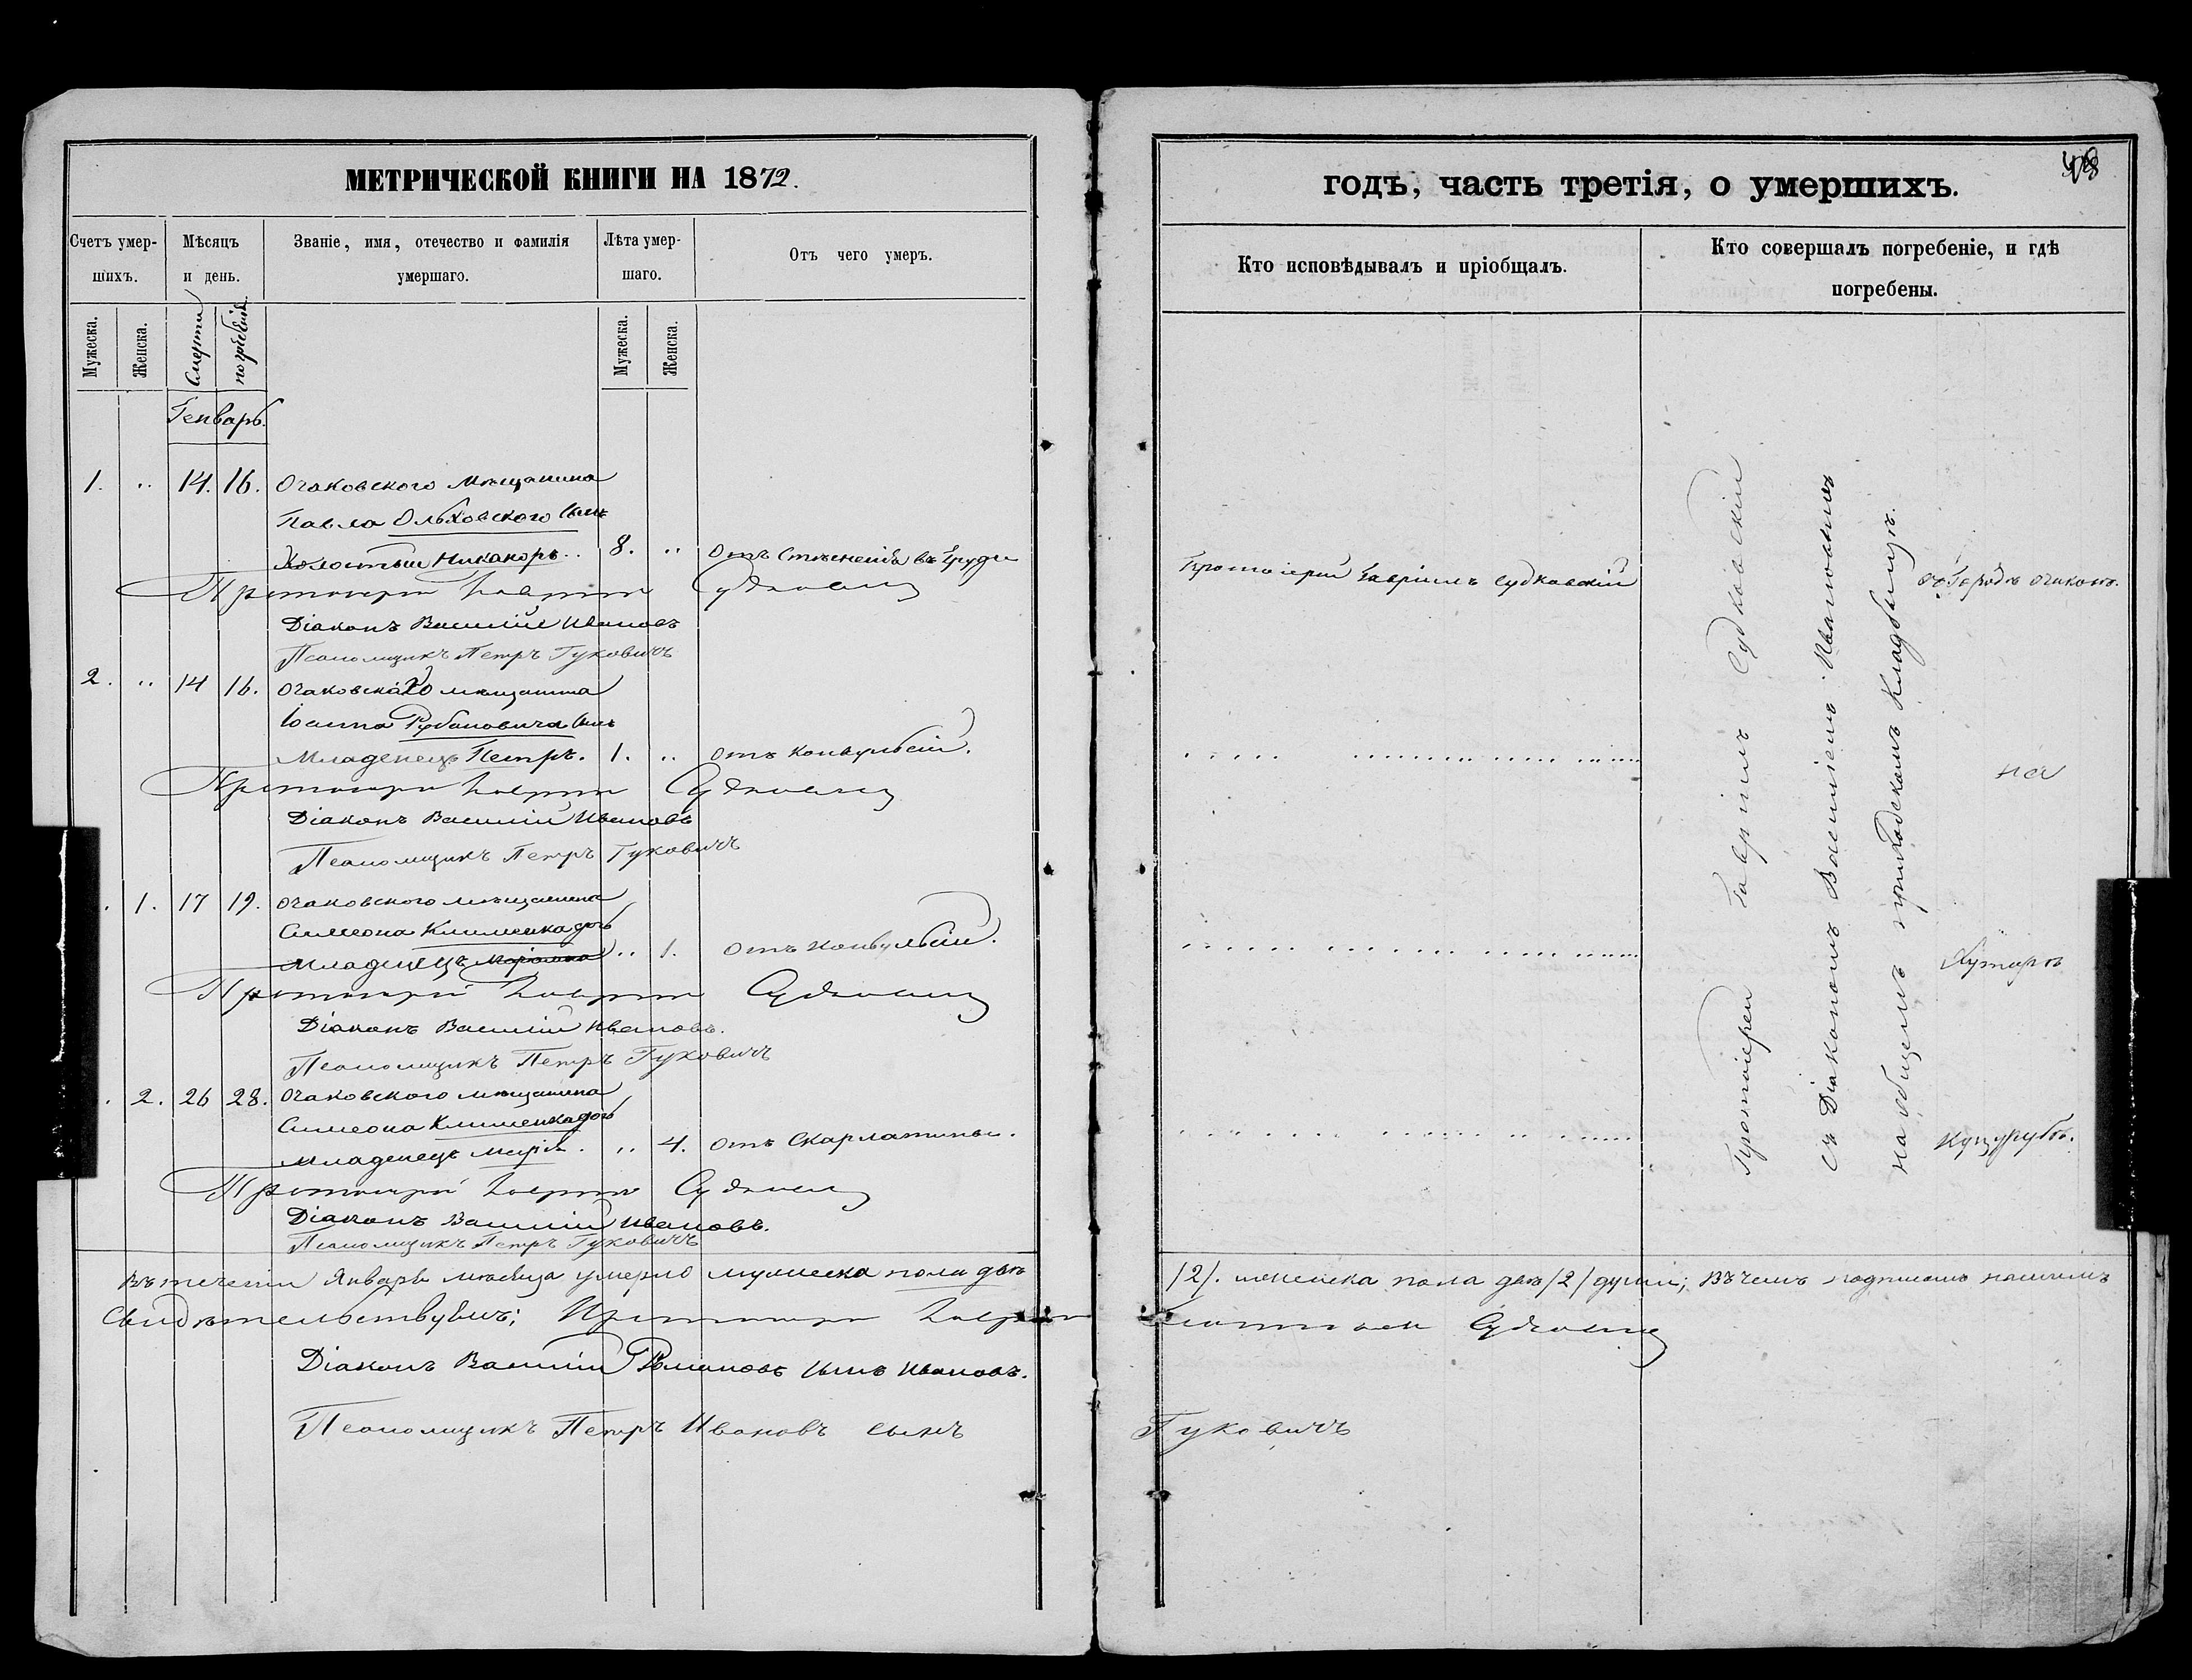 МЕТРИЧЕСКОЙ КНИГИ НА 1872.
Счетъ умер-
шихъ.
Мѣсяцъ
и день.
Званіе, имя, отечество и фамилія
умершаго.
Лѣта умер-
шаго.
Отъ чего умеръ.
Мужеска.
Женска.
Смерти
погребенія
Мужеска.
Женска.
Генварь.
1. .. 14. 16. Очаковского мѣщанина
Павла Ольховского сынъ
Холостый Никаноръ.. 8. .. Отъ стѣсненія въ груди
Протоіерей Гавріилъ Судковскій
Діаконъ Василій Ивановъ
Псаломщикъ Петръ Гуковичъ
2. .. 14 16. Очаковскаго мѣщанина
Іоанна Рубановича сынъ
Младенецъ Петръ. 1. .. Отъ конвульсій.
Протоіерей Гавріилъ Судковскій
Діаконъ Василій Ивановъ
Псаломщикъ Петръ Гуковичъ
. 1. 17 19. Очаковского мѣщанина
Симеона Клименка дочь
Младенецъ .. 1. Отъ конвульсій.
Протоіерей Гавріилъ Судковскій
Діаконъ Василій Ивановъ.
Псаломщикъ Петръ Гуковичъ
. 2. 26 28. Очаковского мѣщанина
Симеона Клименка дочь
Младенецъ Марія. .. 4. Отъ скарлатины.
Протоіерей Гавріилъ Судковскій
Діаконъ Василій Ивановъ.
Псаломщикъ Петръ Гуковичъ
Въ теченіи Января мѣсяца умерло мужеска пола двѣ
Свидѣтельствуемъ: Протоіерей Гавріилъ
Діаконъ Василій Романовъ сынъ Ивановъ.
Псаломщикъ Петръ Ивановъ сынъ
годъ, часть третія, о умершихъ.
Кто исповѣдывалъ и пріобщалъ.
Кто совершалъ погребеніе, и гдѣ
погребены.
Протоіерей Гавріилъ Судковскій
Протоіерей Гавріилъ Судковскій
съ Діакономъ Василіемъ Ивановымъ
на общемъ приходскомъ кладбищѣ.
въ городѣ Очаковѣ.
на
Хуторѣ
Куцурубѣ.
/2/. женска пола двѣ /2/ души; въ чемъ подписомъ нашимъ
Судковскій
Гуковичъ